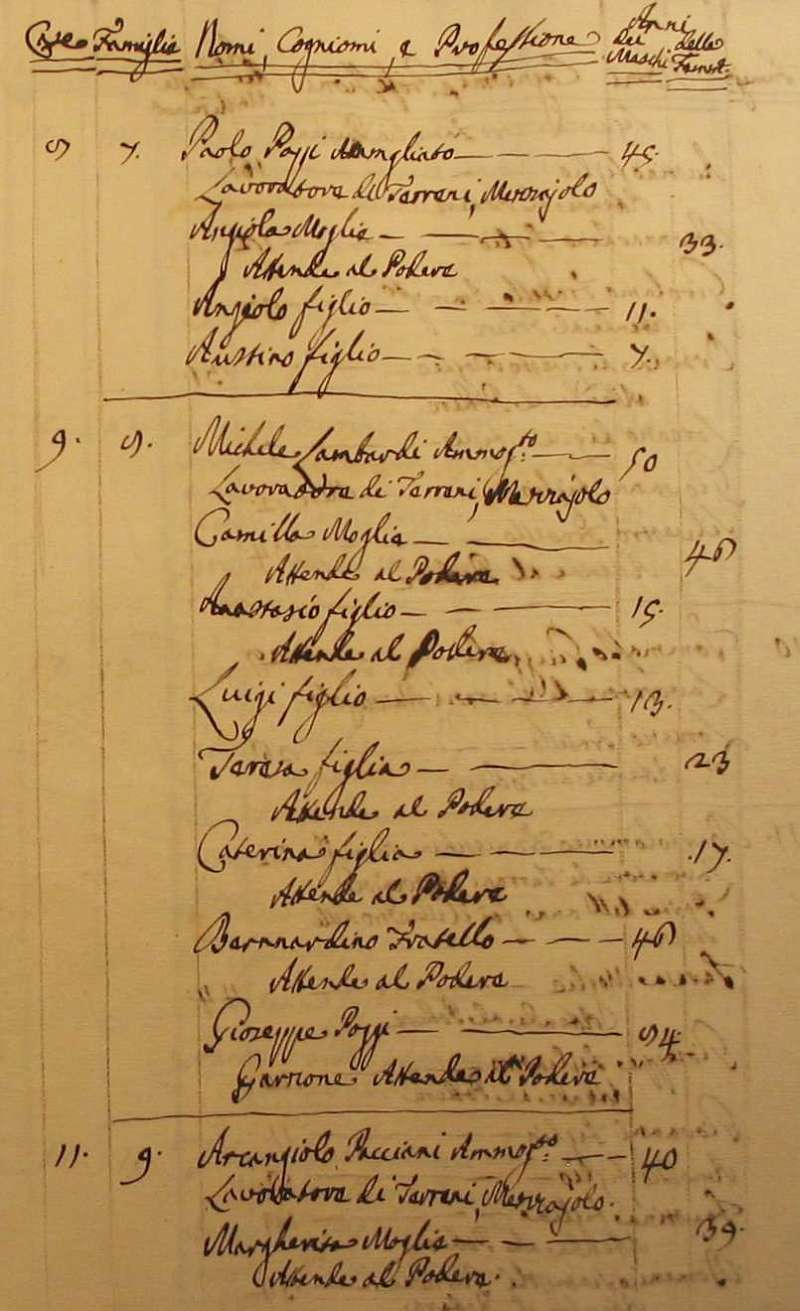 Case Famiglie Nomi, Cogniomi, e Professione Anni dei Maschi delle Femet.
7. Paolo Poggi Ammogliato 45.
Lavoratore di Terreni, Mezzajolo
Angiola Moglie 33.
Attende al Podere
Angiolo figlio 11.
Austino figlio 7.
9. 8. Michele Lambardi Ammog.to 50
Lavoratore di Terreni, Mezzajolo
Camilla Moglie 46
Attende al Podere
Anastasio figlio 15.
Attende al Podere
Luigi figlio 13.
Teresa figlia 23
Attende al Podere
Caterina figlia 17.
Attende al Podere
Barnnardino Fratello 46
Attende al Podere
Gioseppe Poggi
Garzione Attende al Podere
11. 9. Arcangiolo Pacciani Ammog.to 40
Lavoratore di Terreni, Mezzajolo.
Margherita Moglie 39.
Attende al Podere.